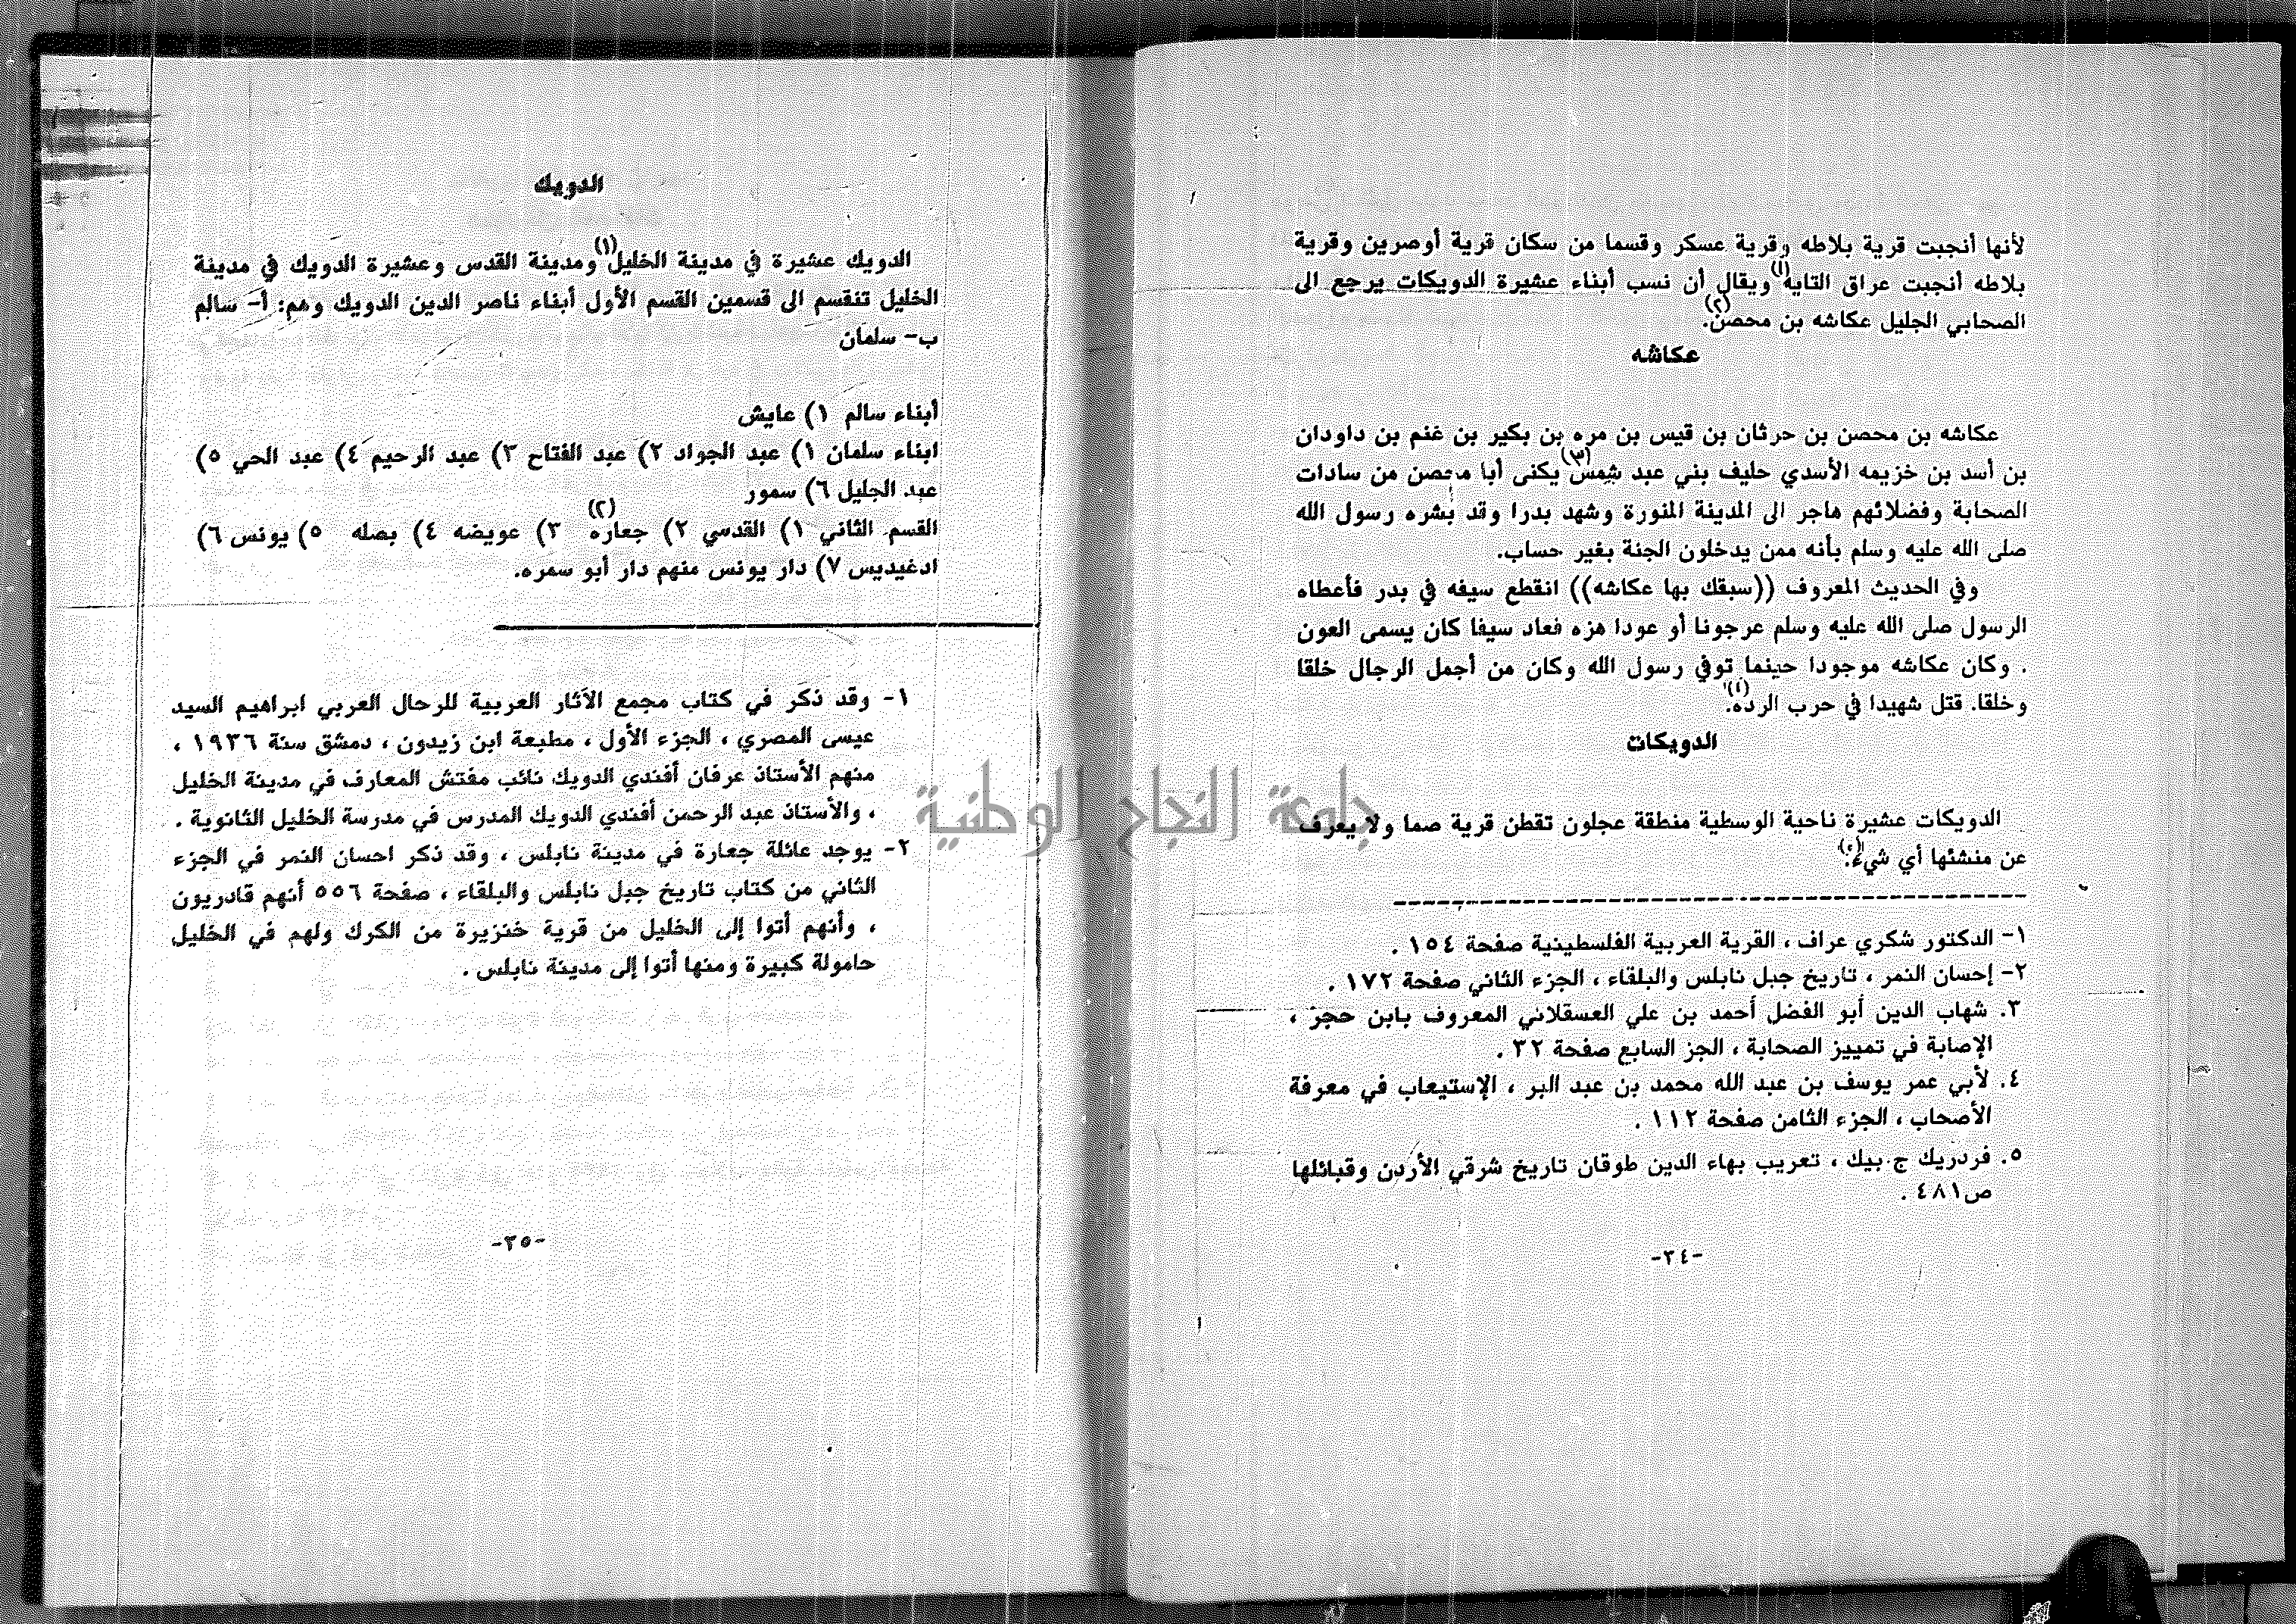 لأنها أنجبت قرية بلاطه وقرية عسكر وقسما من سكان قرية أوصرين وقرية
بلاطه أنجبت عراق التايه(١) ويقال أن نسب أبناء عشيرة الدويكات يرجع الى
الصحابي الجليل عكاشه بن محصن(٢).
عكاشه
عكاشه بن محصن بن حرثان بن قيس بن مره بن بكير بن غنم بن داودان
بن أسد بن خزيمه الأسدي حليف بني عبد شمس(٣) يكنى أبا محصن من سادات
الصحابة وفضلائهم هاجر الى المدينة المنورة وشهد بدرا وقد بشره رسول الله
صلى الله عليه وسلم بأنه ممن يدخلون الجنة بغير حساب.
وفي الحديث المعروف ((سبقك بها عكاشه)) انقطع سيفه في بدر فأعطاه
الرسول صلى الله عليه وسلم عرجونا أو عودا هزه فعاد سيفا كان يسمى العون
. وكان عكاشه موجودا حينما توفي رسول الله وكان من أجمل الرجال خلقا
وخلقا. قتل شهيدا في حرب الرده.
الدويكات
الدويكات عشيرة ناحية الوسطية منطقة عجلون تقطن قرية صما ولا يعرف
عن منشئها أي شيء.
١- الدكتور شكري عراف ، القرية العربية الفلسطينية صفحة ١٥٤ .
٢- إحسان النمر ، تاريخ جبل نابلس والبلقاء ، الجزء الثاني صفحة ١٧٢ .
٣. شهاب الدين أبو الفضل أحمد بن علي العسقلاني المعروف بابن حجر ،
الإصابة في تمييز الصحابة ، الجز السابع صفحة ٣٢ .
٤. لأبي عمر يوسف بن عبد الله محمد بن عبد البر ، الإستيعاب في معرفة
الأصحاب ، الجزء الثامن صفحة ١١٢ .
٥. فردريك ج.بيك ، تعريب بهاء الدين طوقان تاريخ شرقي الأردن وقبائلها
ص٤٨١ .
-٢٤-
الدويك
الدويك عشيرة في مدينة الخليل(١) ومدينة القدس وعشيرة الدويك في مدينة
الخليل تنقسم الى قسمين القسم الأول أبناء ناصر الدين الدويك وهم: أ- سالم
ب- سلمان
أبناء سالم ١) عايش
ابناء سلمان ١) عبد الجواد ٢) عبد الفتاح ٣) عبد الرحيم ٤) عبد الحي ٥)
عبد الجليل ٦) سمور
القسم الثاني ١) القدسي ٢) جعاره(٢) ٣) عويضه ٤) بصله ٥) يونس ٦)
ادغيديس ٧) دار يونس منهم دار أبو سمره.
١- وقد ذكر في كتاب مجمع الآثار العربية للرحال العربي ابراهيم السيد
عيسى المصري ، الجزء الأول ، مطبعة ابن زيدون ، دمشق سنة ١٩٣٦ ،
منهم الأستاذ عرفان أفندي الدويك نائب مفتش المعارف في مدينة الخليل
، والأستاذ عبد الرحمن أفندي الدويك المدرس في مدرسة الخليل الثانوية .
٢- يوجد عائلة جعارة في مدينة نابلس ، وقد ذكر احسان النمر في الجزء
الثاني من كتاب تاريخ جبل نابلس والبلقاء ، صفحة ٥٥٦ أنهم قادريون
، وأنهم أتوا إلى الخليل من قرية خنزيرة من الكرك ولهم في الخليل
حامولة كبيرة ومنها أتوا إلى مدينة نابلس .
-٢٥-
جامعة النجاح الوطنية